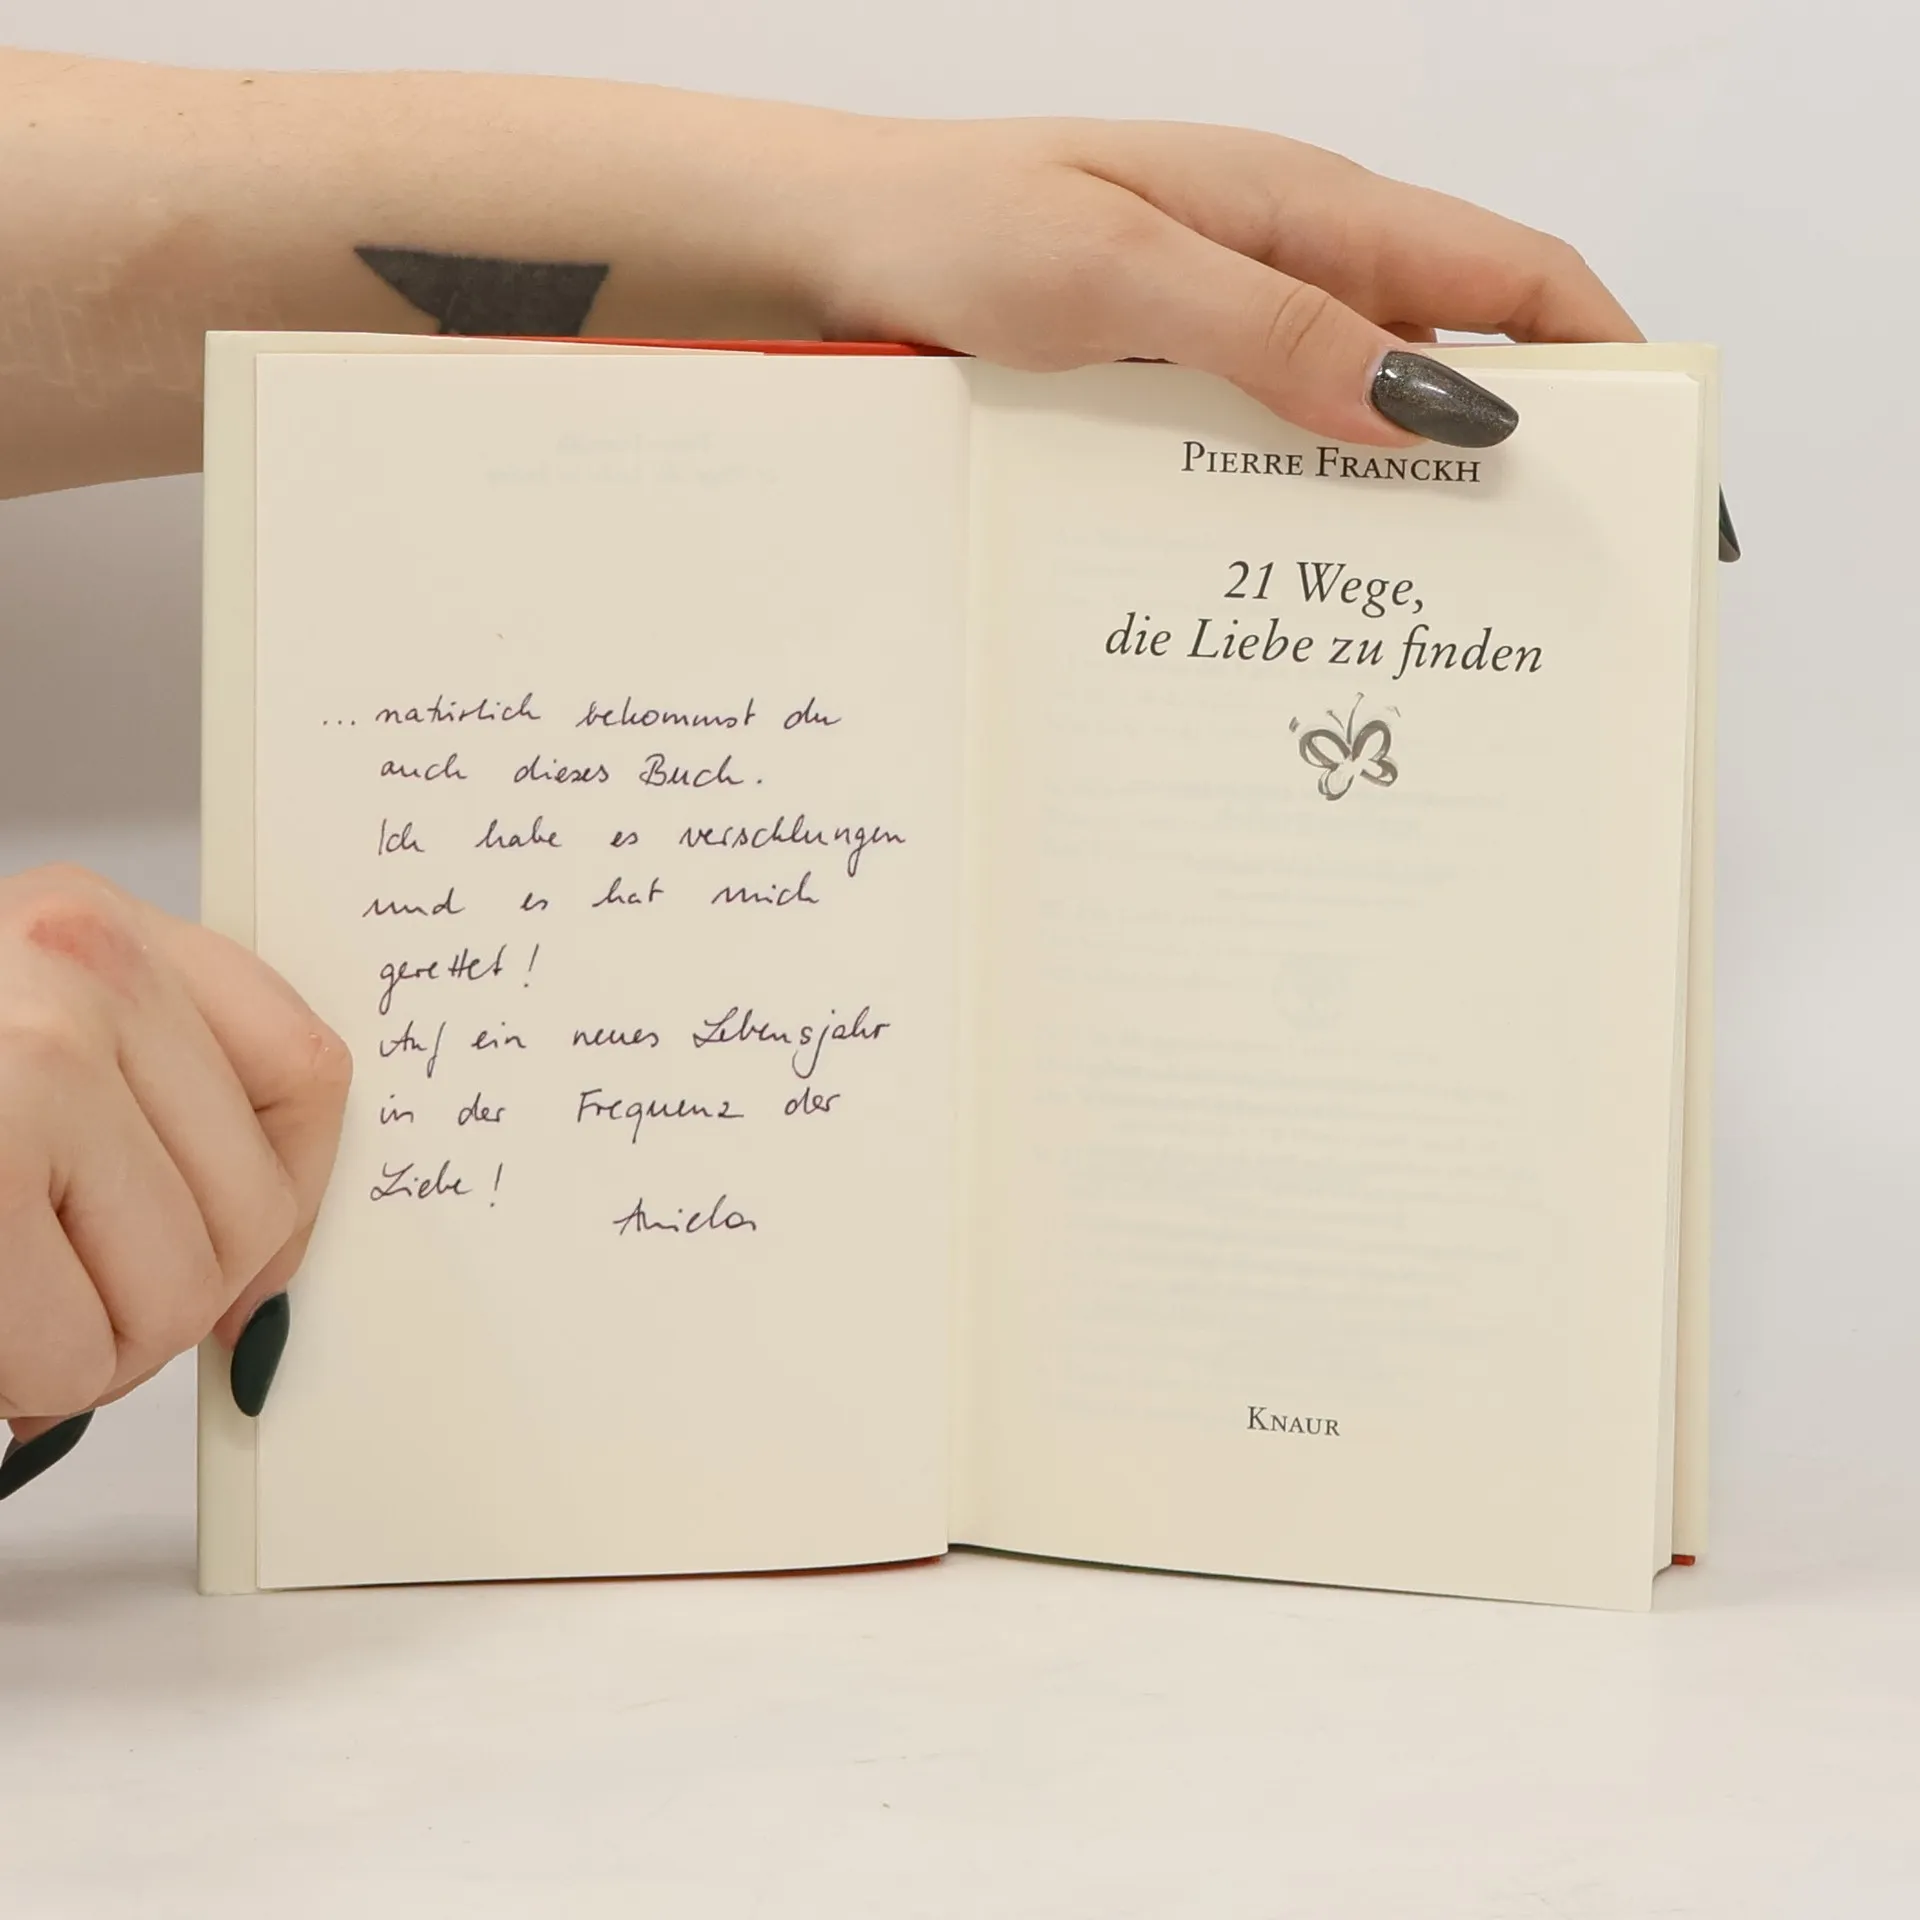 ... natürlich bekommst du
auch dieses Buch.
Ich habe es verschlungen
und es hat mich
gerettet!
Auf ein neues Lebensjahr
in der Frequenz der
Liebe!
PIERRE FRANCKH
21 Wege,
die Liebe zu finden
KNAUR